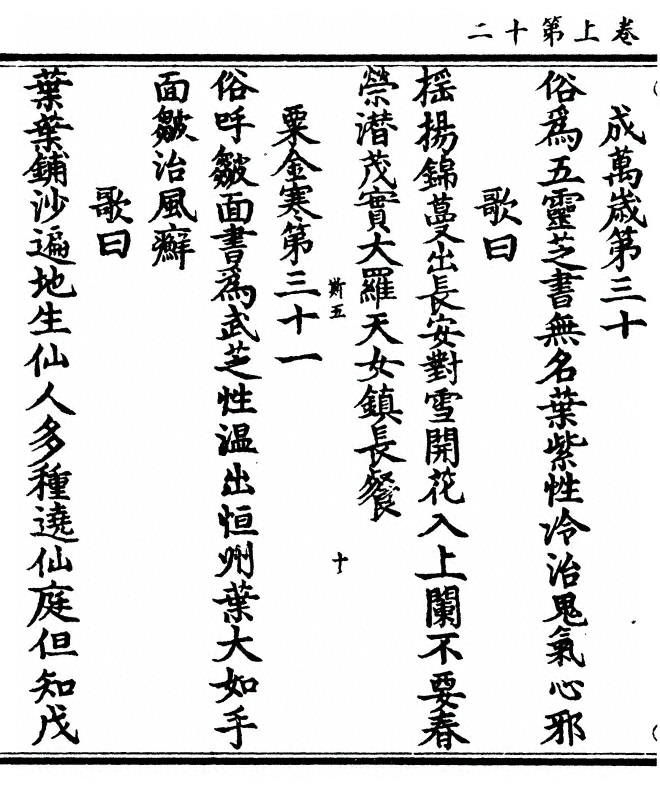 二十第上卷
成萬歲第三十
俗爲五靈芝書無名葉紫性冷治鬼氣心邪
歌曰
揺揚錦蔓出長安對雪開花入上闌不要春
榮潜茂實大羅天女鎮長餐
斯五
十
粟金寒第三十一
俗呼皺面書爲武芝性温出恒州葉大如手
面皺治風癬
歌曰
葉葉鋪沙遍地生仙人多種遶仙庭但知戊